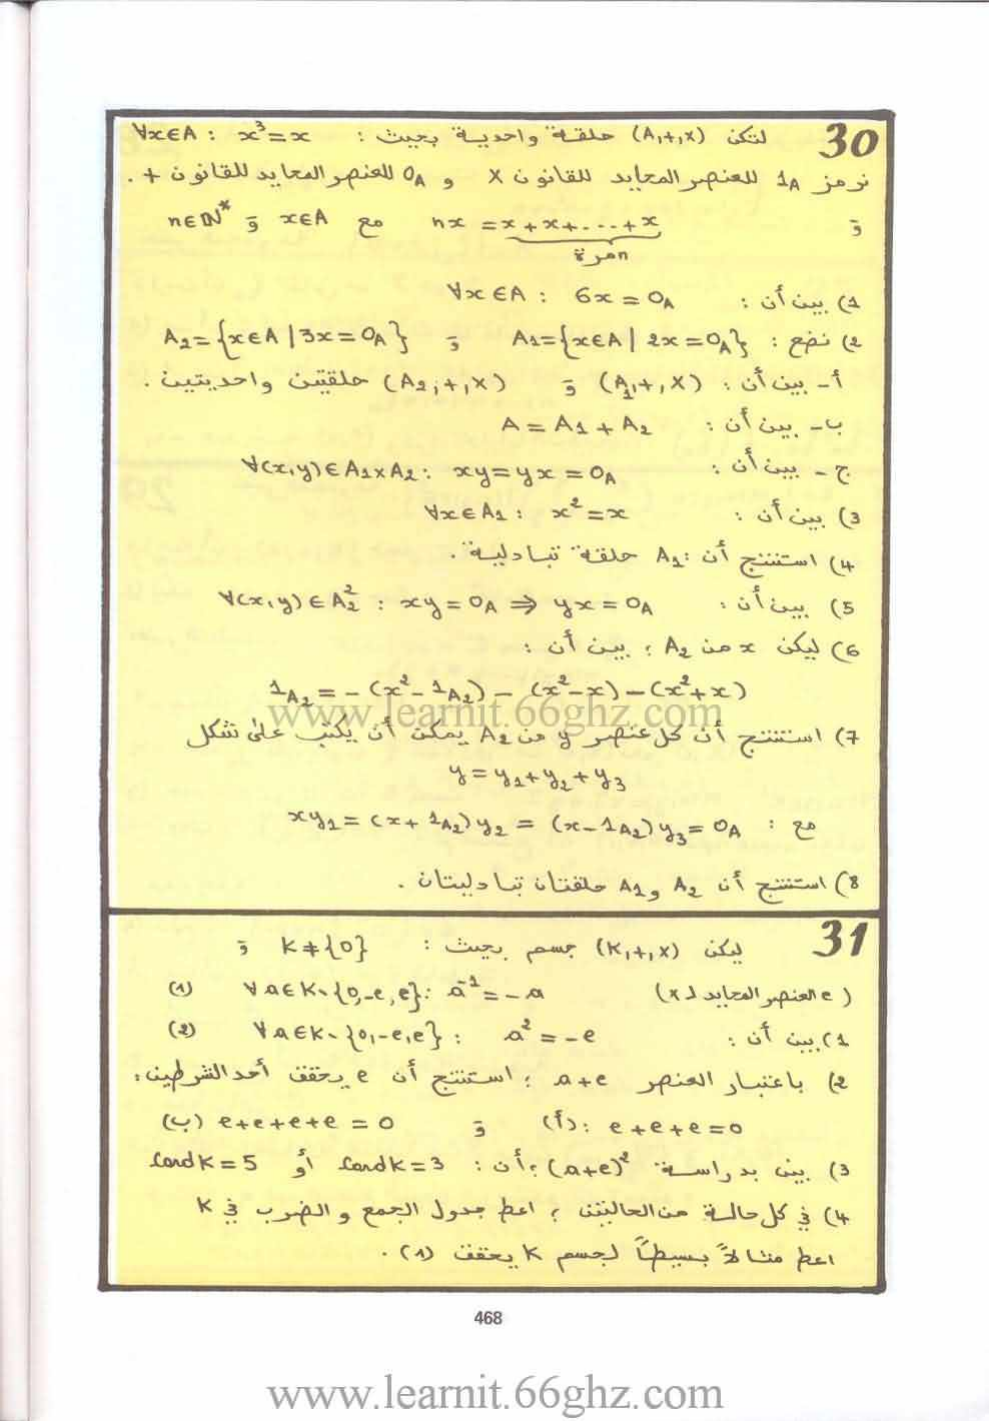 30 لتكن (A,+,×) حلقة واحدية بحيث : ∀x∈A : x³=x
نرمز 1A للعنصر المحايد للقانون × و 0A للعنصر المحايد للقانون + .
و nx = x+x+...+x مع x∈A و n∈ℕ*
n مرة
1) بين أن : ∀x∈A : 6x = 0A
2) نضع : A₁={x∈A | 2x=0A} و A₂={x∈A | 3x=0A}
أ- بين أن : (A₁,+,×) و (A₂,+,×) حلقتين واحديتين .
ب- بين أن : A = A₁ + A₂
ج - بين أن : ∀(x,y)∈A₁×A₂ : xy=yx=0A
3) بين أن : ∀x∈A₁ : x²=x
4) استنتج أن : A₁ حلقة تبادلية .
5) بين أن : ∀(x,y)∈A₂² : xy=0A ⇒ yx=0A
6) ليكن x من A₂ ؛ بين أن :
1A₂ = -(x²-1A₂) - (x²-x) - (x²+x)
www.learnit.66ghz.com
7) استنتج أن كل عنصر y من A₂ يمكن أن يكتب على شكل
y = y₁+y₂+y₃
مع : xy₁ = (x+1A₂)y₂ = (x-1A₂)y₃ = 0A
8) استنتج أن A₂ و A₁ حلقتان تبادليتان .
31 ليكن (K,+,×) جسم بحيث : K≠{0} و
( e العنصر المحايد لـ × ) ∀a∈K-{0,-e,e} : a⁻¹=-a (1)
1) بين أن : ∀a∈K-{0,-e,e} : a²=-e (2)
2) باعتبار العنصر a+e ؛ استنتج أن e يحقق أحد الشرطين :
(أ) : e+e+e=0 و (ب) e+e+e+e=0
3) بين بدراسة (a+e)² ؛ أن : Card K=3 أو Card K=5
4) في كل حالة من الحالتين ؛ اعط جدول الجمع و الضرب في K
اعط مثالاً بسيطاً لجسم K يحقق (1) .
468
www.learnit.66ghz.com